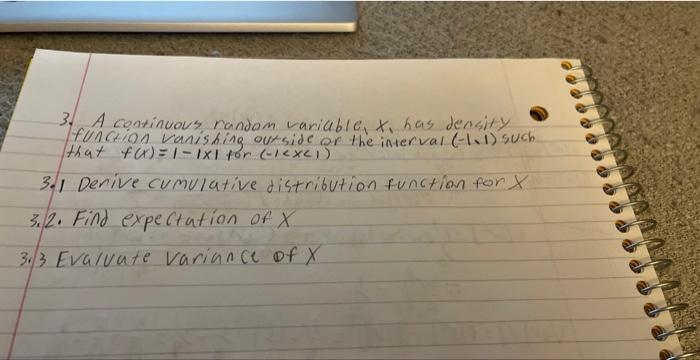 3. A continuous random variable, X, has density
function vanishing outside of the interval (-1,1) such
that f(x)=1-|x| for (-1<x<1)
3.1 Derive cumulative distribution function for X
3.2. Find expectation of X
3.3 Evaluate variance of X